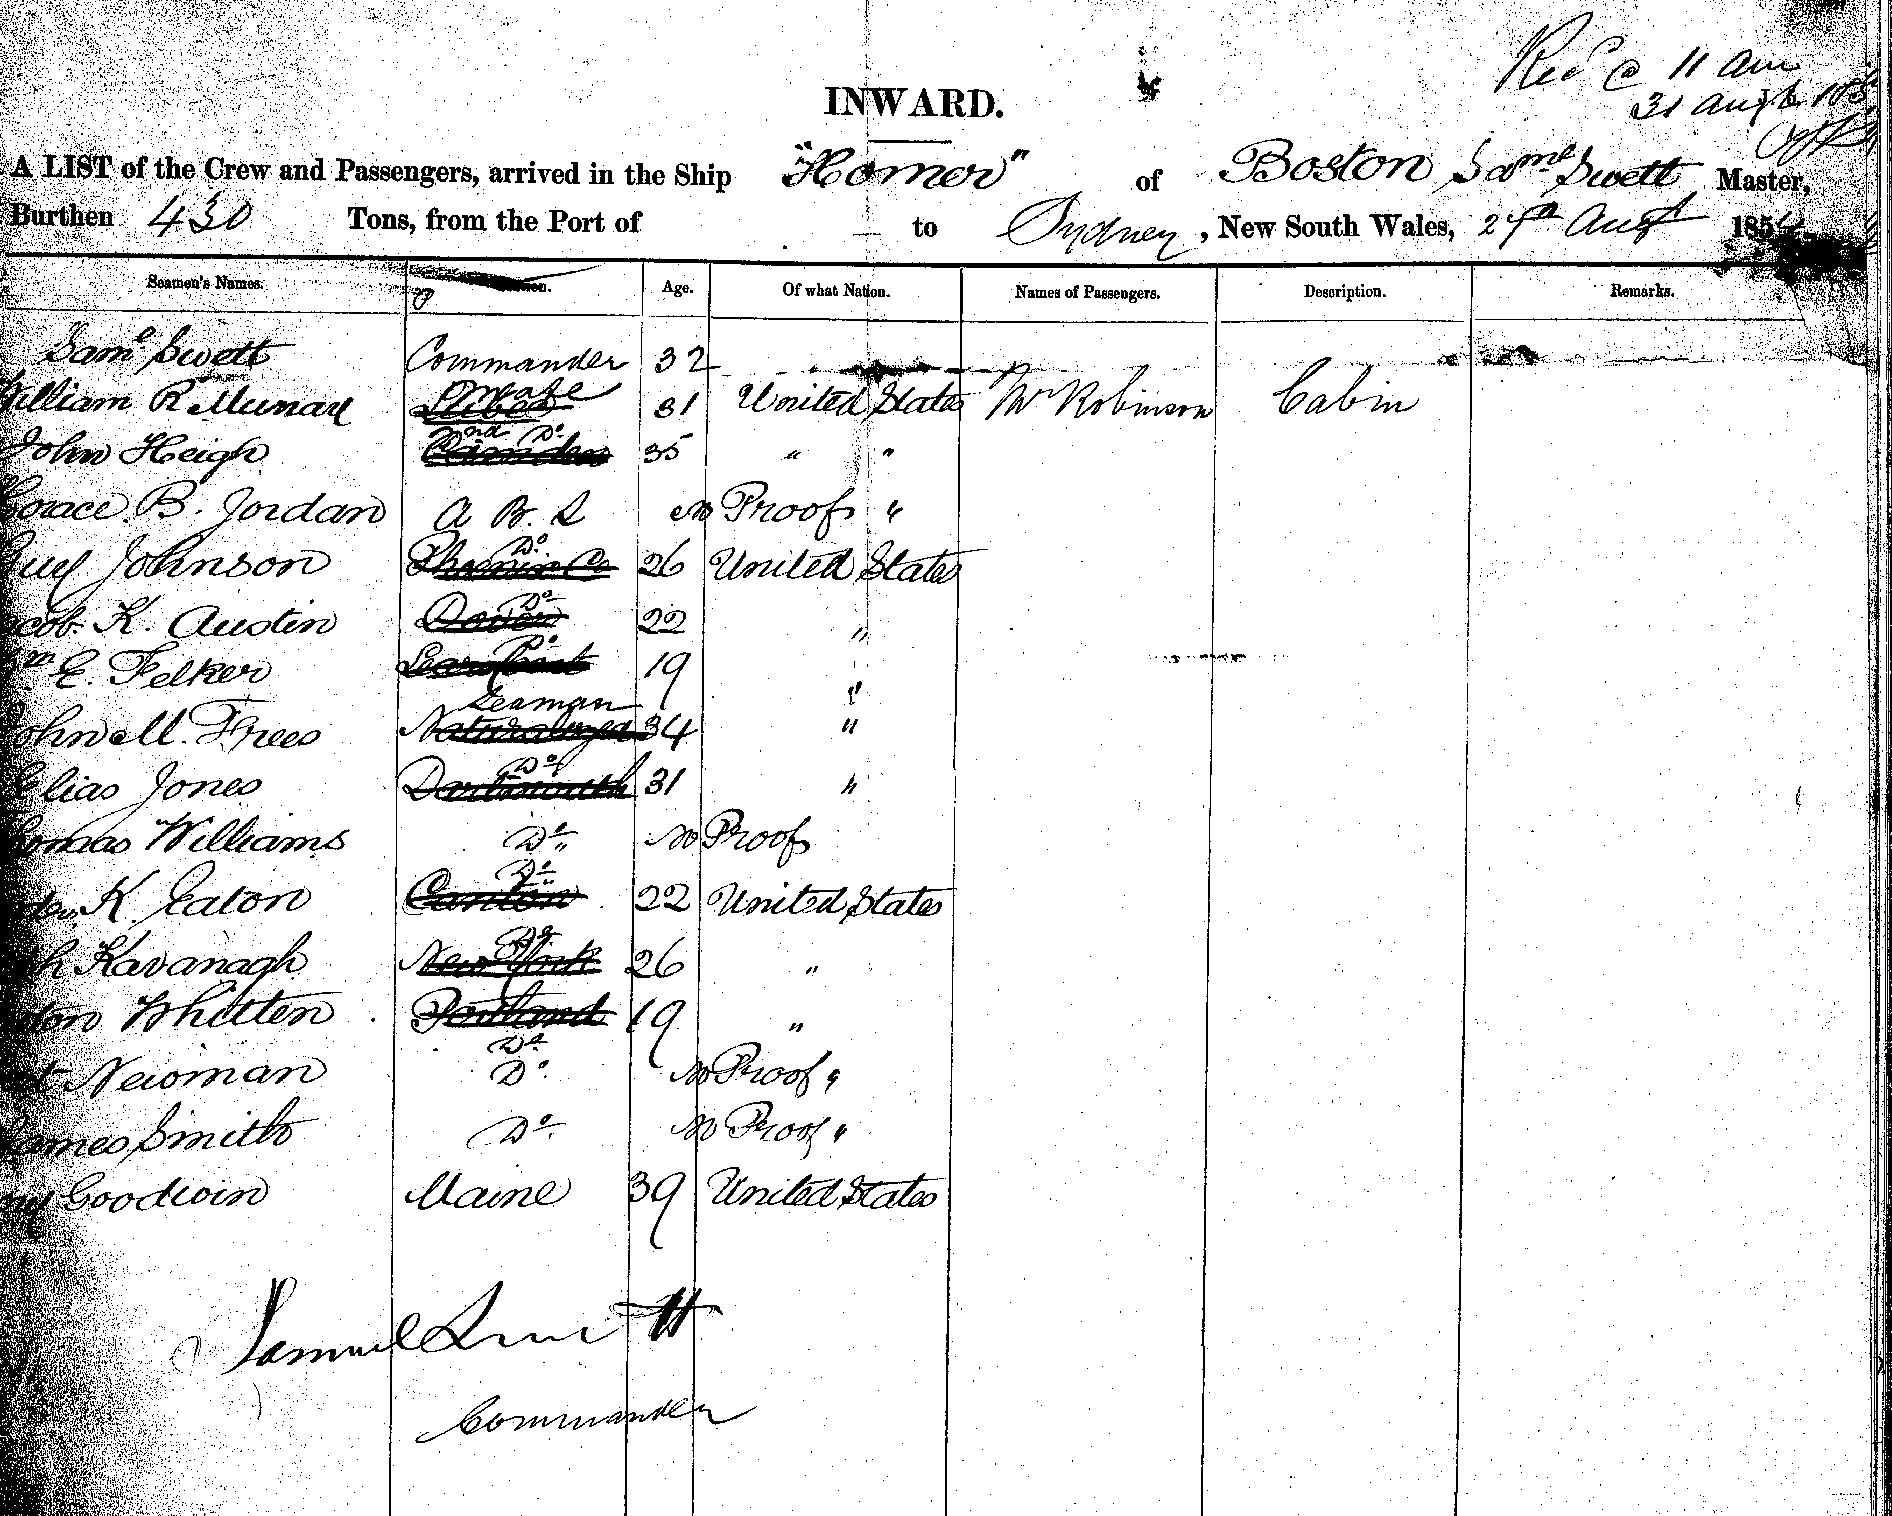 Recd @ 11 am
31 Augt
INWARD.
A LIST of the Crew and Passengers, arrived in the Ship "Homer" of Boston Saml Swett Master,
Burthen 430 Tons, from the Port of to Sydney, New South Wales, Augt 185
Seamen's Names. Age. Of what Nation. Names of Passengers. Description. Remarks.
Saml Swett Commander 32
William R Murray Mate 31 United States Mr Robinson Cabin
John Heigh 2nd Do 35 " "
Horace B. Jordan A B. S no Proof "
Johnson Do 26 United States
K. Austin Do 22 "
Wm E. Felker Do 19 "
John M. Frees Seaman Naturalized 34 "
Elias Jones Do Dartmouth 31 "
Thomas Williams Do no Proof
K. Eaton Do Canton 22 United States
Kavanagh Do New York 26 "
Whitten Portland 19 "
Do
Newman Do no Proof "
James Smith Do no Proof "
Goodwin Maine 39 United States
Samuel Swett
Commander